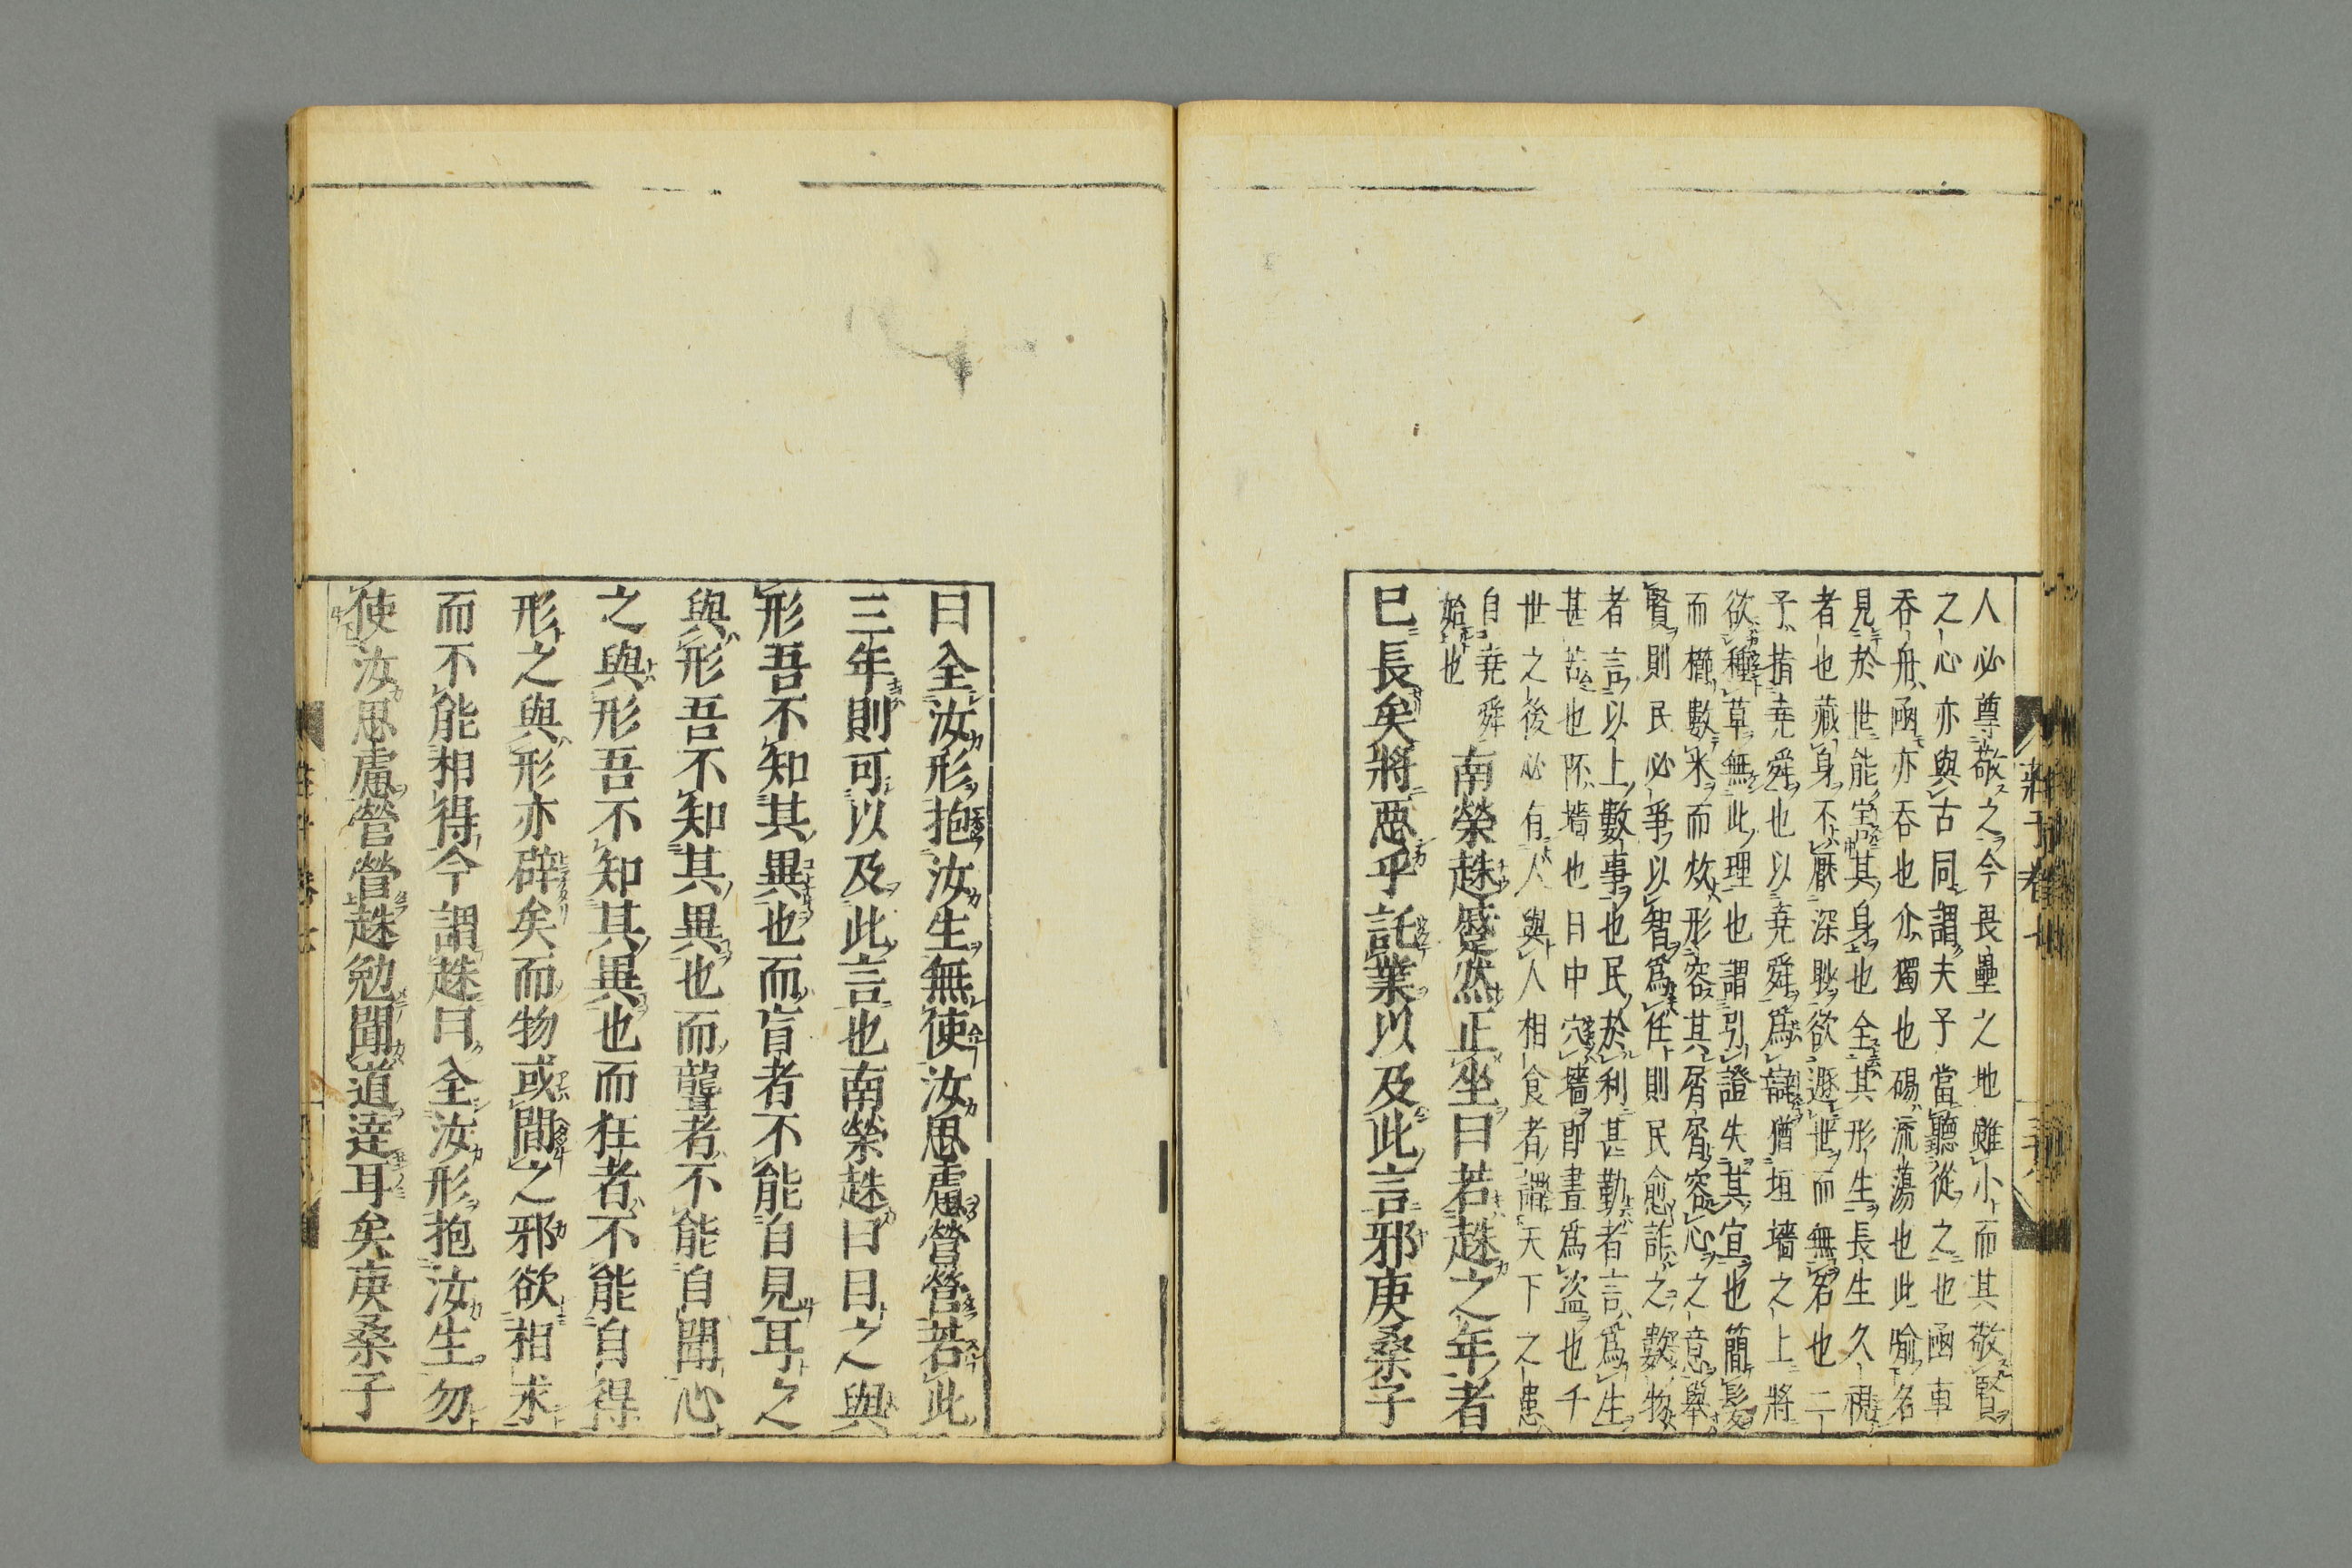 莊子卷七
人必尊敬之今畏壘之地雖小而其敬賢
之心亦與古同謂夫子當聽從之也函車
吞舟函亦吞也介獨也碭流蕩也此喻名
見於世能害其身也全其形生長生久視
者也藏身不厭深眇欲遯世而無名也二
子指堯舜也以堯舜爲辯猶垣墻之上將
欲種草無此理也謂引證失其宜也簡髮
而櫛數米而炊形容其屑屑容心之意舉
賢則民必爭以智爲任則民愈詐之數物
者言以上數事也民於利甚勤者言爲生
甚苦也阫墻也日中穴墻卽晝爲盜也千
世之後必有人與人相食者謂天下之患
自堯舜
始也
南榮趎蹵然正坐曰若趎之年者
已長矣將惡乎託業以及此言邪庚桑子
曰全汝形抱汝生無使汝思慮營營若此
三年則可以及此言也南榮趎曰目之與
形吾不知其異也而盲者不能自見耳之
與形吾不知其異也而聾者不能自聞心
之與形吾不知其異也而狂者不能自得
形之與形亦辟矣而物或間之邪欲相求
而不能相得今謂趎曰全汝形抱汝生勿
使汝思慮營營趎勉聞道達耳矣庚桑子